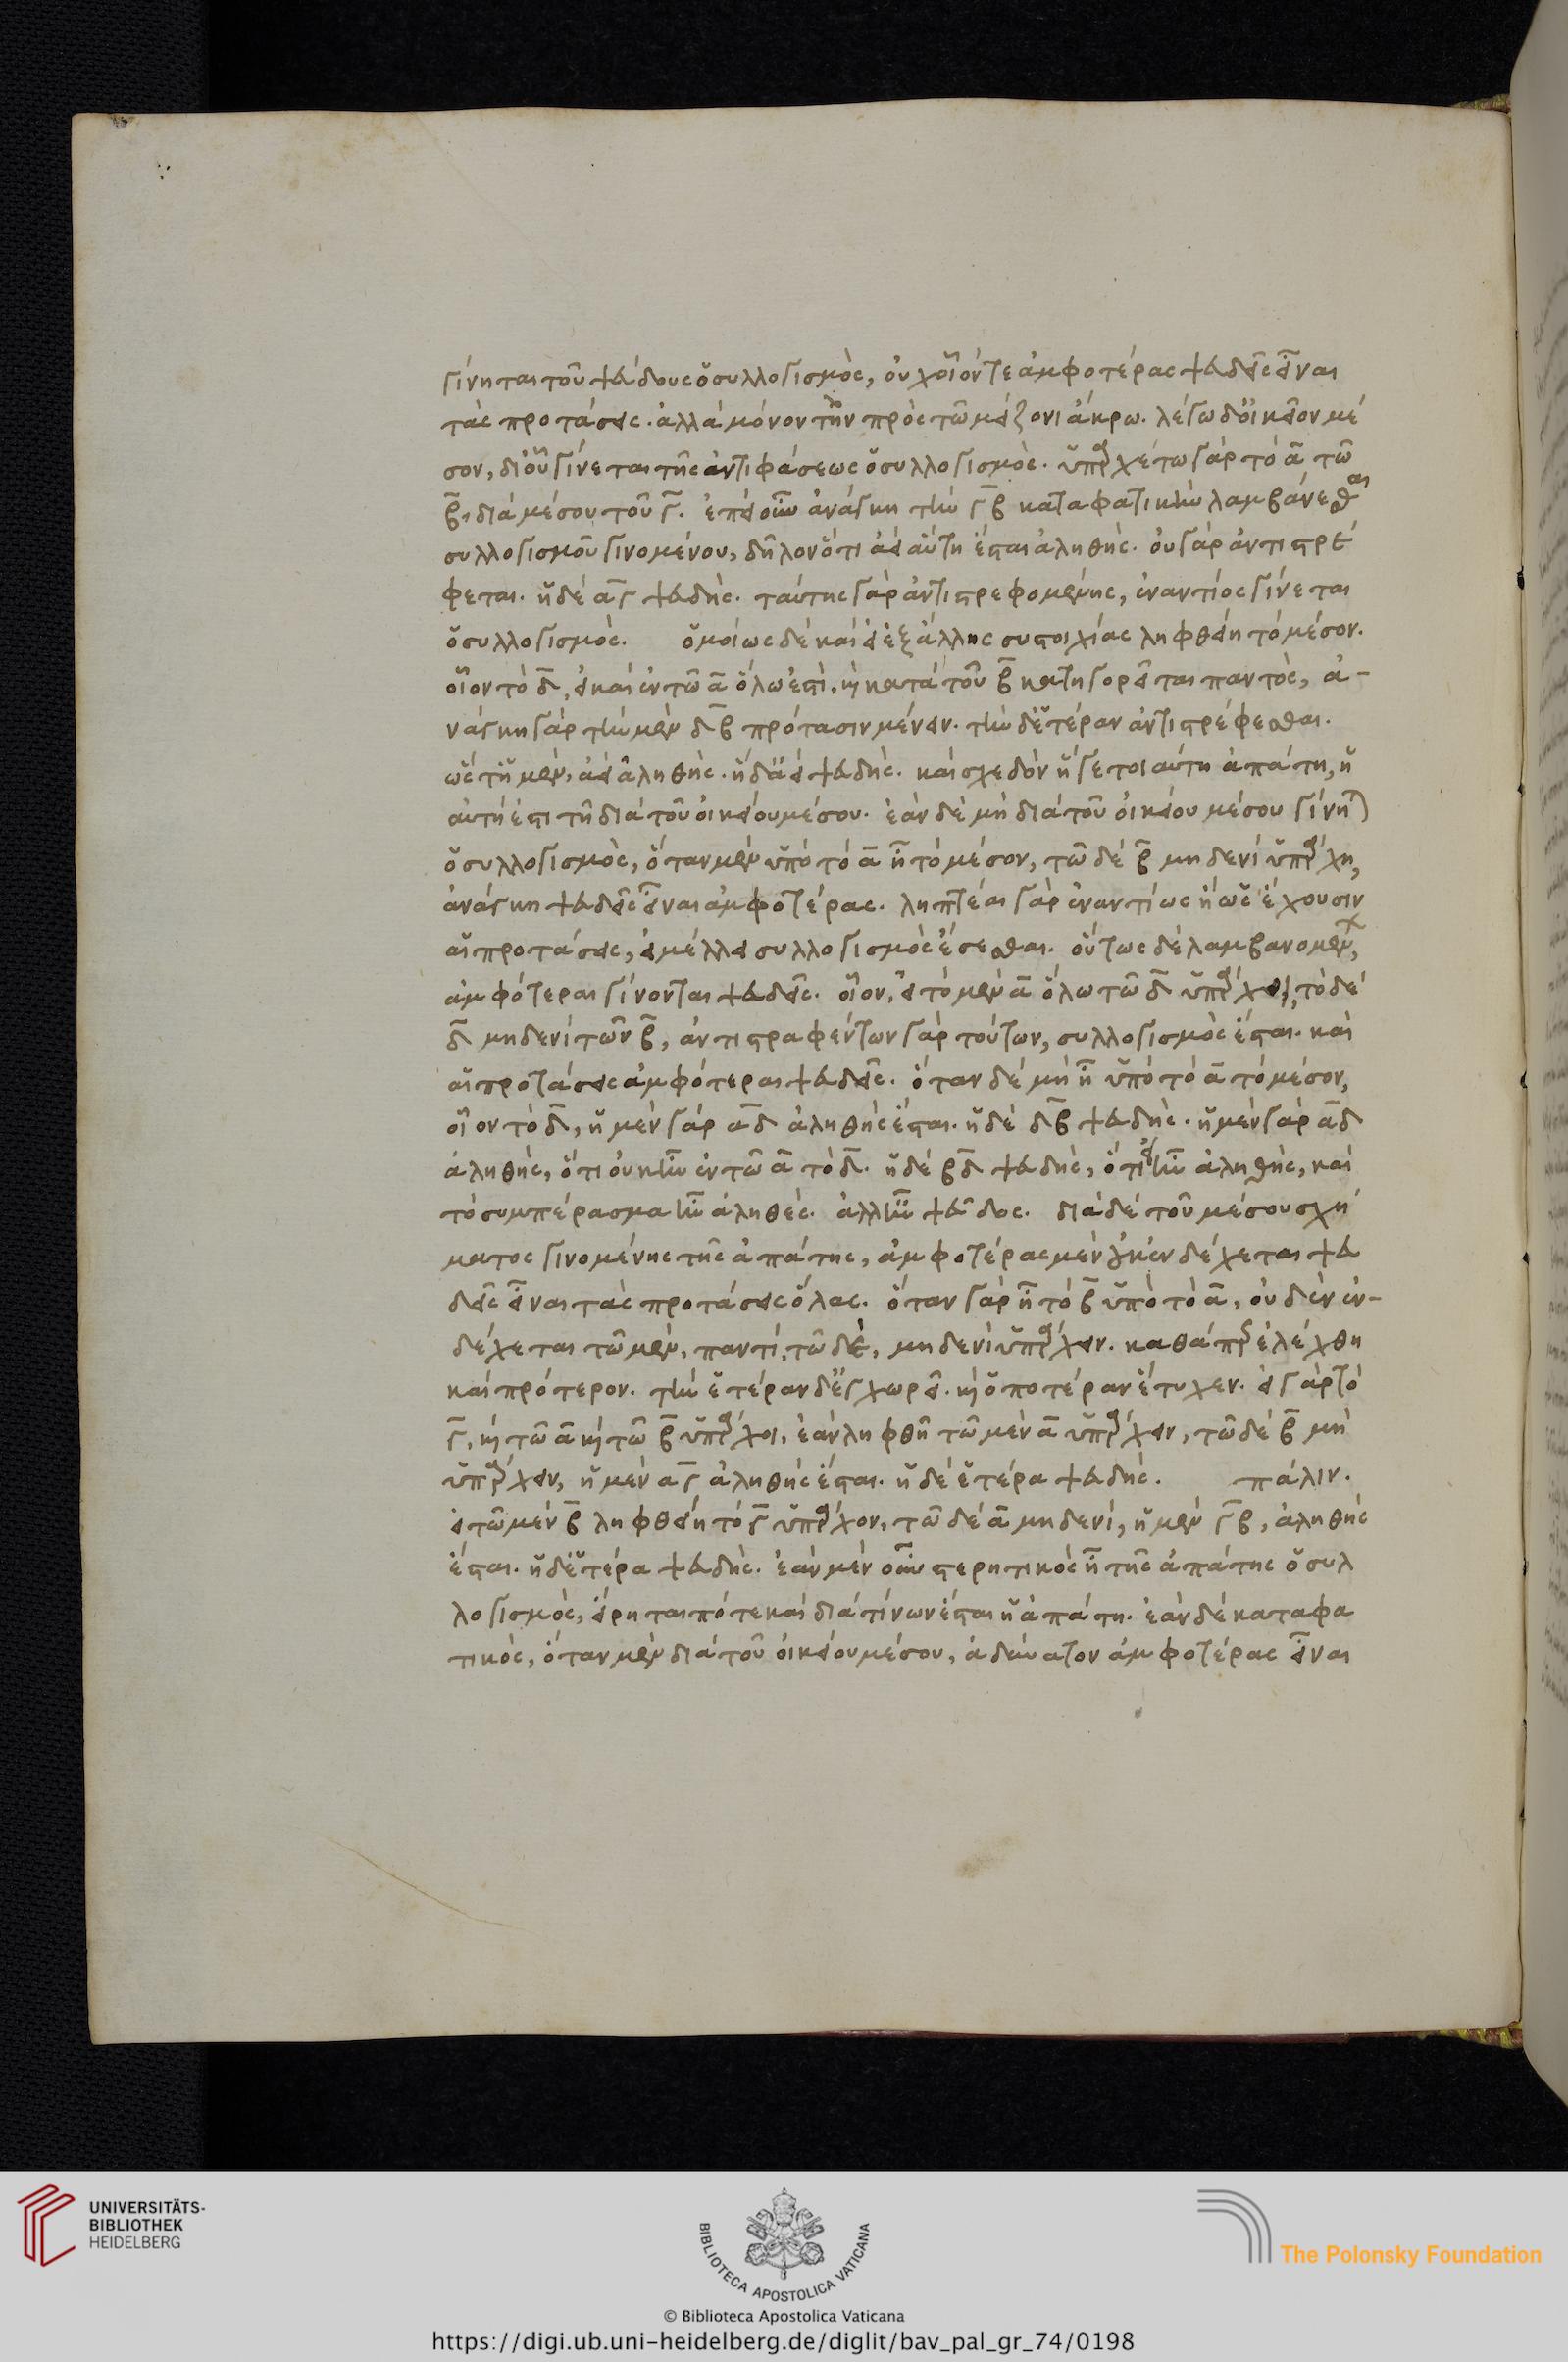 γίνηται τοῦ ψεύδους ὁ συλλογισμὸς, οὐχ οἷόν τε ἀμφοτέρας ψευδεῖς εἶναι
τὰς προτάσεις. ἀλλὰ μόνον τὴν πρὸς τῶ μείζονι ἄκρω. λέγω δ' οἰκεῖον μέ
σον, δι' οὗ γίνεται τῆς ἀντιφάσεως ὁ συλλογισμὸς. ὑπαρχέτω γὰρ τὸ α̅ τῶ
β̅, διὰ μέσου τοῦ γ̅. ἐπεὶ οὖν ἀνάγκη τὴν γ̅β̅ καταφατικὴν λαμβάνεσθαι
συλλογισμοῦ γινομένου, δῆλον ὅτι ἀεὶ αὕτη ἔσται ἀληθής. οὐ γὰρ ἀντιστρέ
φεται. ἡ δὲ α̅γ̅ ψευδὴς. ταύτης γὰρ ἀντιστρεφομένης, ἐναντίος γίνεται
ὁ συλλογισμὸς. ὁμοίως δὲ καὶ εἰ ἐξ ἄλλης συστοιχίας ληφθείη τὸ μέσον.
οἷον τὸ δ̅, εἰ καὶ ἐν τῶ α̅ ὅλω ἐστὶ, καὶ κατὰ τοῦ β̅ κατηγορεῖται παντὸς, ἀ-
νάγκη γὰρ τὴν μὲν δ̅β̅ πρότασιν μένειν. τὴν δ' ἑτέραν ἀντιστρέφεσθαι.
ὥσθ' ἡ μὲν, ἀεὶ ἀληθὴς. ἡ δ' ἀεὶ ψευδὴς. καὶ σχεδὸν ἥ γε τοιαύτη ἀπάτη, ἡ
αὐτή ἐστι τῆ διὰ τοῦ οἰκείου μέσου. ἐὰν δὲ μὴ διὰ τοῦ οἰκείου μέσου γίνηται
ὁ συλλογισμὸς, ὅταν μὲν ὑπὸ τὸ α̅ ἦ τὸ μέσον, τῶ δὲ β̅ μηδενὶ ὑπάρχη,
ἀνάγκη ψευδεῖς εἶναι ἀμφοτέρας. ληπτέαι γὰρ ἐναντίως ἢ ὡς ἔχουσιν
αἱ προτάσεις, εἰ μέλλει συλλογισμὸς ἔσεσθαι. οὕτως δὲ λαμβανομένων,
ἀμφότεραι γίνονται ψευδεῖς. οἷον, εἰ τὸ μὲν α̅ ὅλω τῶ δ̅ ὑπάρχει, τὸ δὲ
δ̅ μηδενὶ τῶν β̅, ἀντιστραφέντων γὰρ τούτων, συλλογισμὸς ἔσται. καὶ
αἱ προτάσεις ἀμφότεραι ψευδεῖς. ὅταν δὲ μὴ ἦ ὑπὸ τὸ α̅ τὸ μέσον,
οἷον τὸ δ̅, ἡ μὲν γὰρ α̅δ̅ ἀληθὴς ἔσται. ἡ δὲ δ̅β̅ ψευδὴς. ἡ μὲν γὰρ α̅δ̅
ἀληθὴς, ὅτι οὐκ ἦν ἐν τῶ α̅ τὸ δ̅. ἡ δὲ β̅δ̅ ψευδὴς, ὅτι εἰ ἦν ἀληθὴς, καὶ
τὸ συμπέρασμα ἦν ἀληθὲς. ἀλλ' ἦν ψεῦδος. διὰ δὲ τοῦ μέσου σχή
ματος γινομένης τῆς ἀπάτης, ἀμφοτέρας μὲν οὐκ ἐνδέχεται ψευ
δεῖς εἶναι τὰς προτάσεις ὅλας. ὅταν γὰρ ἦ τὸ β̅ ὑπὸ τὸ α̅, οὐδὲν ἐν-
δέχεται τῶ μὲν, παντὶ, τῶ δὲ, μηδενὶ ὑπάρχειν. καθάπερ ἐλέχθη
καὶ πρότερον. τὴν ἑτέραν δ' ἐγχωρεῖ. καὶ ὁποτέραν ἔτυχεν. εἰ γὰρ τὸ
γ̅, καὶ τῶ α̅ καὶ τῶ β̅ ὑπάρχοι, ἐὰν ληφθῆ τῶ μὲν α̅ ὑπάρχειν, τῶ δὲ β̅ μὴ
ὑπάρχειν, ἡ μὲν α̅γ̅ ἀληθὴς ἔσται. ἡ δὲ ἑτέρα ψευδὴς. πάλιν.
εἰ τῶ μὲν β̅ ληφθείη τὸ γ̅ ὑπάρχον, τῶ δὲ α̅ μηδενὶ, ἡ μὲν γ̅β̅, ἀληθὴς
ἔσται. ἡ δ' ἑτέρα ψευδὴς. ἐὰν μὲν οὖν στερητικὸς ἦ τῆς ἀπάτης ὁ συλ
λογισμὸς, εἴρηται πότε καὶ διὰ τίνων ἔσται ἡ ἀπάτη. ἐὰν δὲ καταφα
τικὸς, ὅταν μὲν διὰ τοῦ οἰκείου μέσου, ἀδύνατον ἀμφοτέρας εἶναι
UNIVERSITÄTS-
BIBLIOTHEK
HEIDELBERG
BIBLIOTECA APOSTOLICA VATICANA
The Polonsky Foundation
© Biblioteca Apostolica Vaticana
https://digi.ub.uni-heidelberg.de/diglit/bav_pal_gr_74/0198